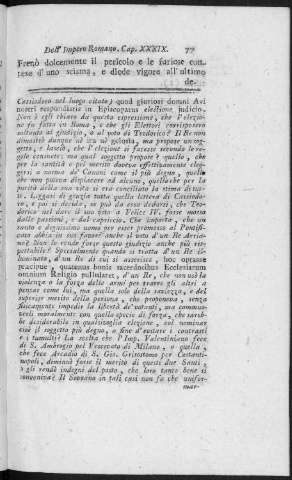 Dell' Impero Romano. Cap. XXXIX. 77
Frenò dolcemente il pericolo e le furiose con-
tese d'uno scisma, e diede vigore all'ultimo
de-
Cassiodoro nel luogo citato) quod gloriosi domni Avi
nostri respondistis in Episcopatus electione judicio.
Non è egli chiaro da questa espressione, che l'elezio-
ne fu fatta in Roma, e che gli Elettori corrisposero
soltanto al giudizio, o al voto di Teodorico? Il Re non
dimostrò dunque al sua nè gelosia, ma propose un sog-
getto, e lasciò, che l'elezione si facesse secondo le re-
gole consuete: ma qual soggetto propose? quello, che
per la santità e pel merito doveva effettivamente eleg-
gersi a norma de' Canoni come il più degno, quello
che non poteva dispiacere ad alcuno, quello che per la
purità della sua vita si era conciliato la stima di tut-
ti. Leggasi di grazia tutta quella lettera di Cassiodo-
ro, e poi si decida, se può da essa dedursi, che Teo-
dorico nel dare il suo voto a Felice IV. fosse mosso
dalle passioni, e dal capriccio. Che importa, che un
santo e degnissimo uomo per esser promosso al Pontifi-
cato abbia in suo favore anche il voto d'un Re Arria-
no? Non lo rende forse questo giudizio anche più ris-
pettabile? Specialmente quando si tratta d'un Re il-
luminato, d'un Re di cui si asserisce, hoc optasse
præcipue, quatenus bonis sacerdotibus Ecclesiarum
omnium Religio pullularet, d'un Re, che non usò la
violenza o la forza delle armi per trarre gli altri a
pensar come lui, ma quella solo della saviezza, e del
superior merito della persona, che proponeva, senza
fisicamente impedir la libertà de' votanti, ma commuo-
verli moralmente con quella specie di forza, che sareb-
be desiderabile in qualsivoglia elezione, col nominar
cioè il soggetto più degno, a fine d'ovviare i contrasti
e i tumulti? La scelta che l'Imp. Valentiniano fece
di S. Ambrogio pel Vescovato di Milano, o quella,
che fece Arcadio di S. Gio. Grisostomo per Costanti-
nopoli, diminuì forse il merito di questi due Santi,
o gli rendè indegni del posto, che loro tanto bene si
conveniva? Il Sovrano in tali casi non fa che unifor-
mar-